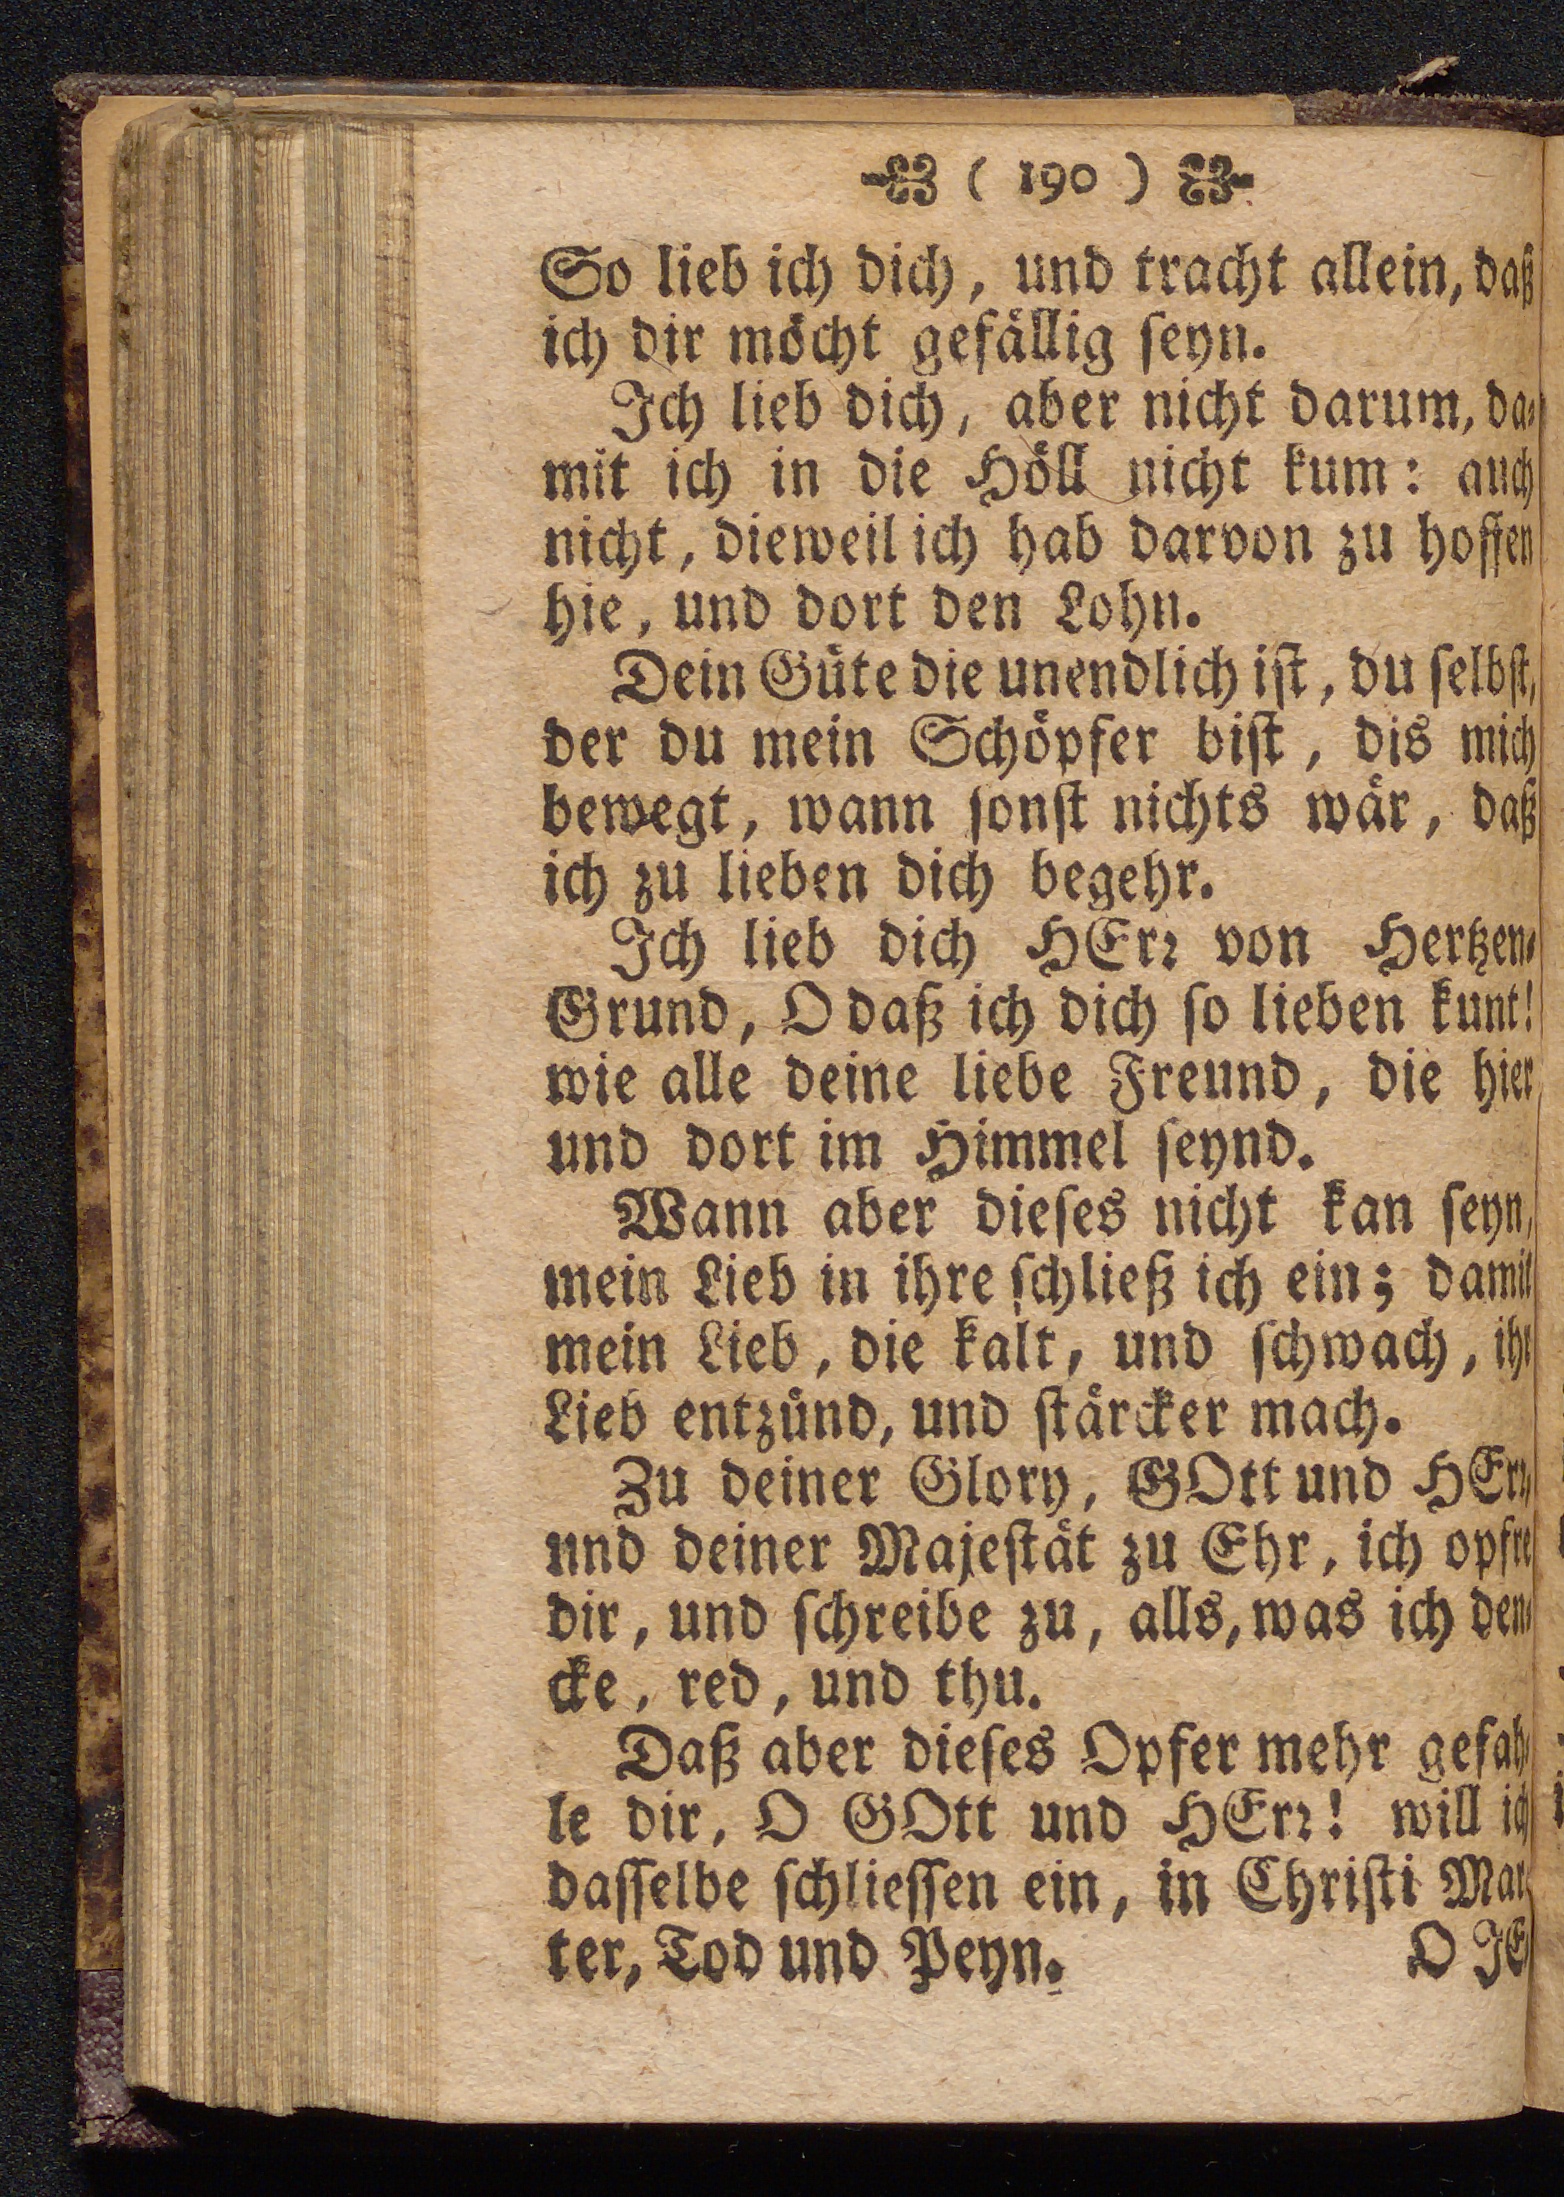 ( 190 )
So lieb ich dich, und tracht allein, daß
ich dir möcht gefällig ſeyn.
Ich lieb dich, aber nicht darum, da⸗
mit ich in die Höll nicht kum: auch
nicht, dieweil ich hab darvon zu hoffen
hie, und dort den Lohn.
Dein Güte die unendlich iſt, du ſelbſt,
der du mein Schöpfer biſt, dis mich
bewegt, wann ſonſt nichts wär, daß
ich zu lieben dich begehr.
Ich lieb dich HErꝛ von Hertzen⸗
Grund, O daß ich dich ſo lieben kunt!
wie alle deine liebe Freund, die hier
und dort im Himmel ſeynd.
Wann aber dieſes nicht kan ſeyn,
mein Lieb in ihre ſchließ ich ein; damit
mein Lieb, die kalt, und ſchwach, ihr
Lieb entzünd, und ſtärcker mach.
Zu deiner Glory, GOtt und HErꝛ,
und deiner Majeſtät zu Ehr, ich opfre
dir, und ſchreibe zu, alls, was ich den⸗
cke, red, und thu.
Daß aber dieſes Opfer mehr gefah⸗
le dir, O GOtt und HErꝛ! will ich
daſſelbe ſchlieſſen ein, in Chriſti Mar⸗
ter, Tod und Peyn. O JE